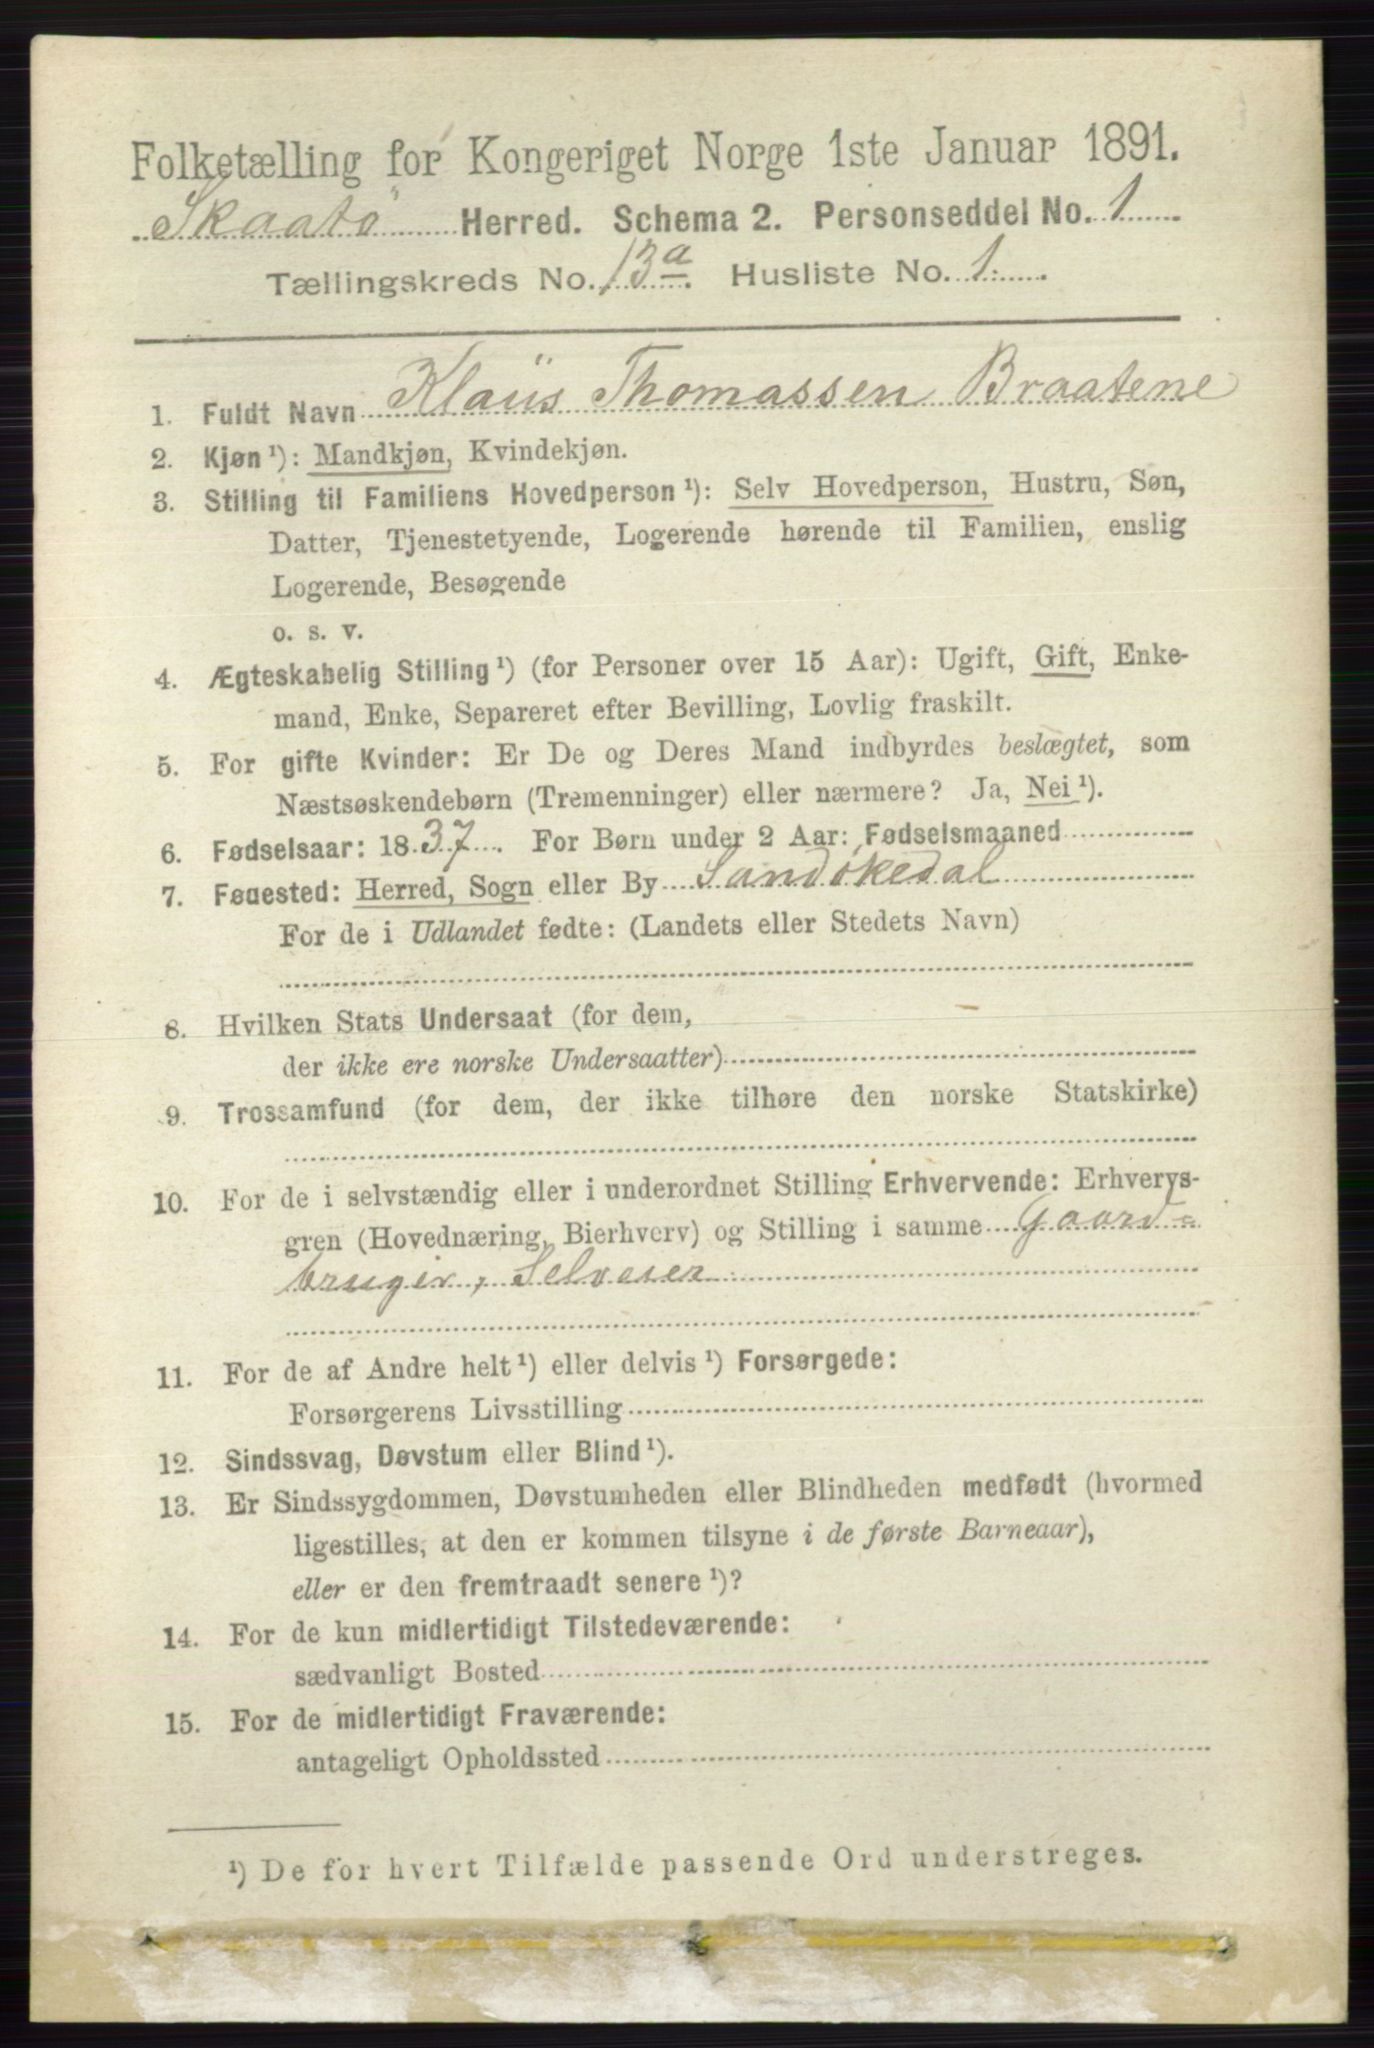 Folketælling for Kongeriget Norge 1ste Januar 1891.
Skaatö Herred. Schema 2. Personseddel No. 1
Tællingskreds No. 13a Husliste No. 1.
1. Fuldt Navn Klaüs Thomassen Braatene
2. Kjøn ¹): Mandkjøn, Kvindekjøn.
3. Stilling til Familiens Hovedperson ¹): Selv Hovedperson, Hustru, Søn,
Datter, Tjenestetyende, Logerende hørende til Familien, enslig
Logerende, Besøgende
o. s. v.
4. Ægteskabelig Stilling ¹) (for Personer over 15 Aar): Ugift, Gift, Enke-
mand, Enke, Separeret efter Bevilling, Lovlig fraskilt.
5. For gifte Kvinder: Er De og Deres Mand indbyrdes beslægtet, som
Næstsøskendebørn (Tremenninger) eller nærmere? Ja, Nei ¹).
6. Fødselsaar: 1837. For Børn under 2 Aar: Fødselsmaaned
7. Føuested: Herred, Sogn eller By Sandökedal
For de i Udlandet fødte: (Landets eller Stedets Navn)
8. Hvilken Stats Undersaat (for dem,
der ikke ere norske Undersaatter)
9. Trossamfund (for dem, der ikke tilhøre den norske Statskirke)
10. For de i selvstændig eller i underordnet Stilling Erhvervende: Erhvervs-
gren (Hovednæring, Bierhverv) og Stilling i samme Gaard-
bruger, Selveier
11. For de af Andre helt ¹) eller delvis ¹) Forsørgede:
Forsørgerens Livsstilling
12. Sindssvag, Døvstum eller Blind ¹).
13. Er Sindssygdommen, Døvstumheden eller Blindheden medfødt (hvormed
ligestilles, at den er kommen tilsyne i de første Barneaar),
eller er den fremtraadt senere ¹)?
14. For de kun midlertidigt Tilstedeværende:
sædvanligt Bosted
15. For de midlertidigt Fraværende:
antageligt Opholdssted
¹) De for hvert Tilfælde passende Ord understreges.